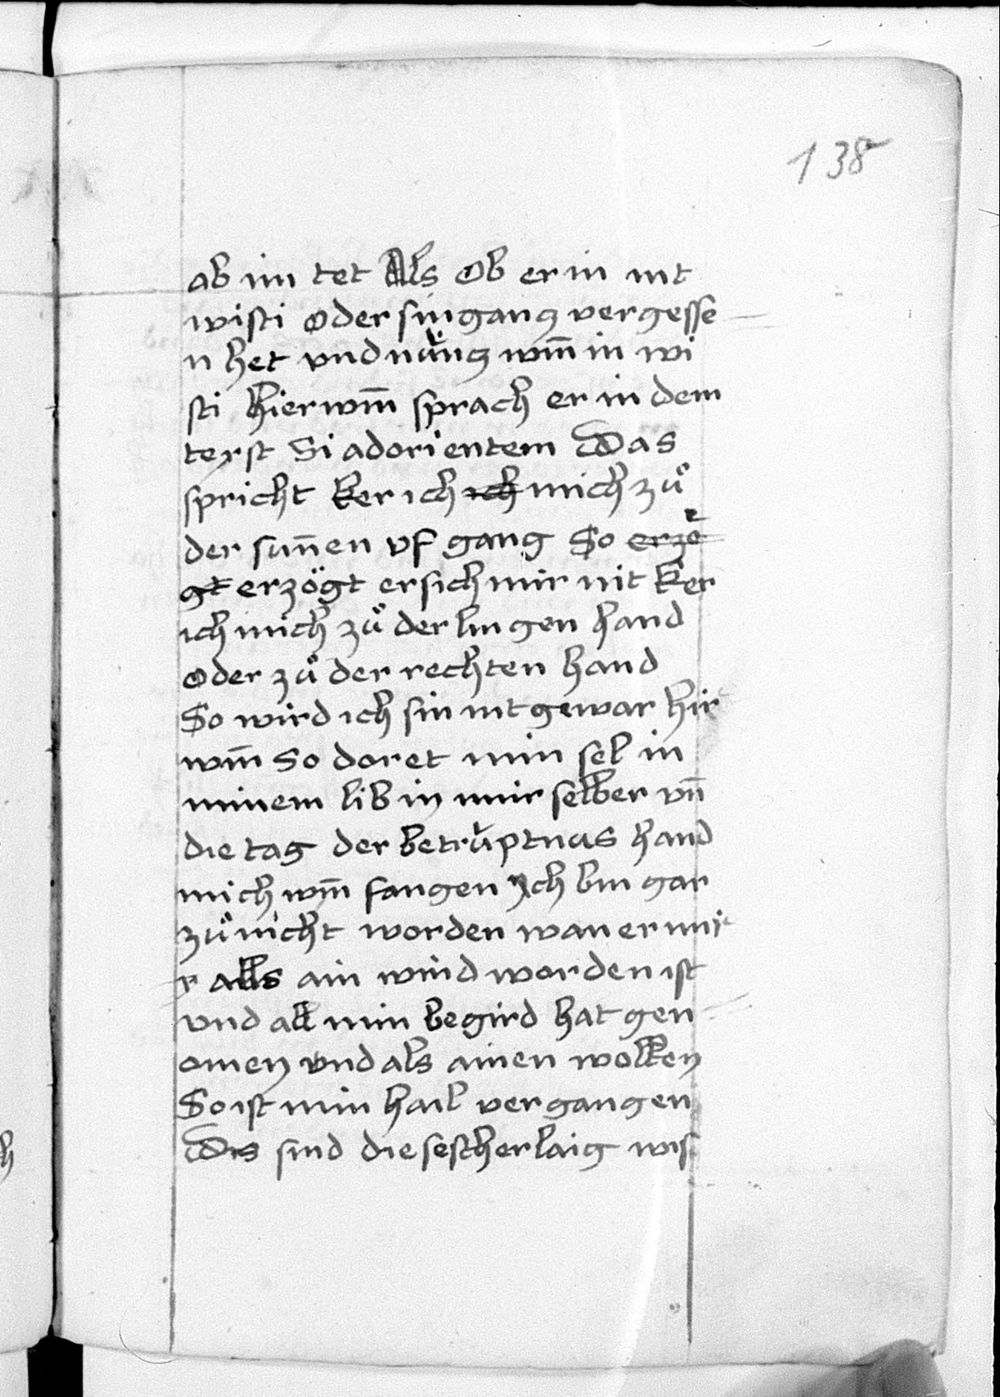 138
ab im tet Als Ob er in nit
wisti Oder sin gang vergesse
n het vnd nu̍ng wm̄ in wi
sti hier wm̄ sprach er in dem
texst Si ad orientem Das
spricht ker ich ich mich zuͦ
der sun̄en vf gang So erzö
gt erzögt er sich mir nit ker
ich mich zuͦ der lingen hand
Oder zuͦ der rechten hand
So wird ich sin nit gewar hir
wm̄ So doret min sel in
minem lib in mir selber vn̄
die tag der betru̍ptnus hand
mich wm̄ fangen ych bin gar
zuͦ nicht worden wan er mi
r alls ain wind worden ist
vnd all min begird hat gen
omen vnd als ainen wolken
So ist min hail vergangen
Dis sind die sescherlaig wis